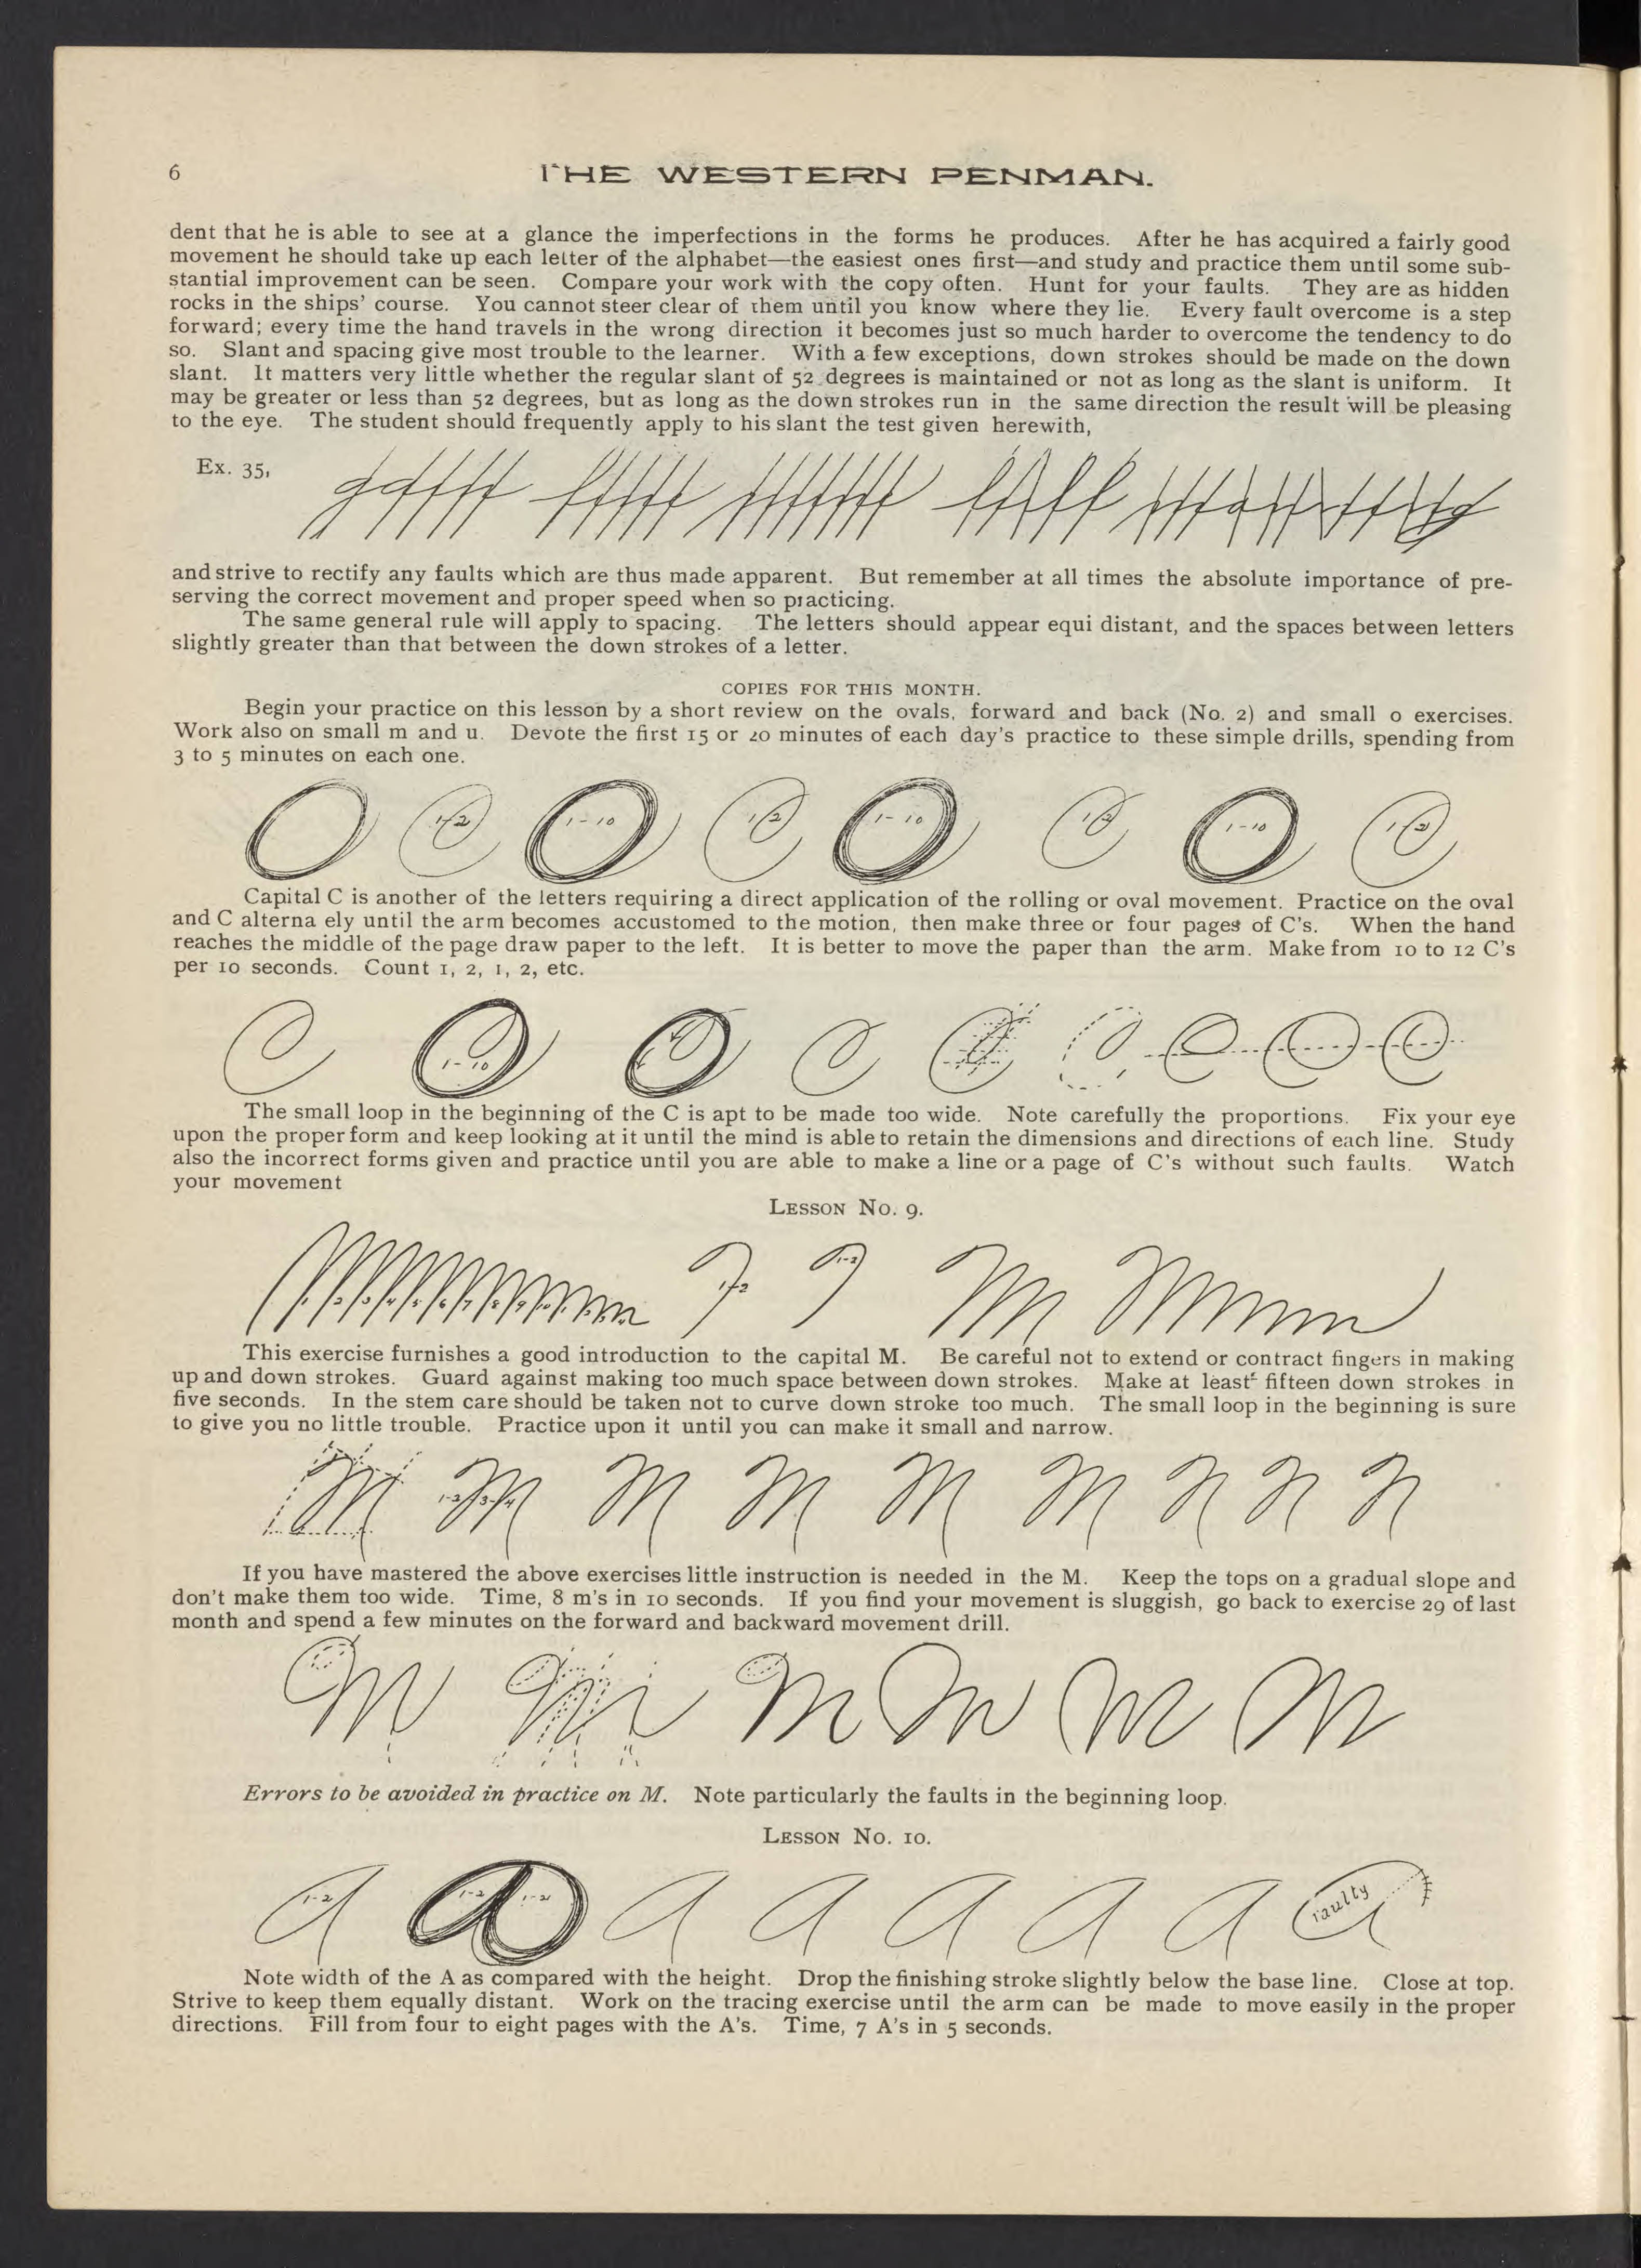 6
THE WESTERN PENMAN.
dent that he is able to see at a glance the imperfections in the forms he produces. After he has acquired a fairly good
movement he should take up each letter of the alphabet—the easiest ones first—and study and practice them until some sub-
stantial improvement can be seen. Compare your work with the copy often. Hunt for your faults. They are as hidden
rocks in the ships' course. You cannot steer clear of them until you know where they lie. Every fault overcome is a step
forward; every time the hand travels in the wrong direction it becomes just so much harder to overcome the tendency to do
so. Slant and spacing give most trouble to the learner. With a few exceptions, down strokes should be made on the down
slant. It matters very little whether the regular slant of 52 degrees is maintained or not as long as the slant is uniform. It
may be greater or less than 52 degrees, but as long as the down strokes run in the same direction the result will be pleasing
to the eye. The student should frequently apply to his slant the test given herewith,
Ex. 35,
and strive to rectify any faults which are thus made apparent. But remember at all times the absolute importance of pre-
serving the correct movement and proper speed when so practicing.
The same general rule will apply to spacing. The letters should appear equi distant, and the spaces between letters
slightly greater than that between the down strokes of a letter.
COPIES FOR THIS MONTH.
Begin your practice on this lesson by a short review on the ovals, forward and back (No. 2) and small o exercises.
Work also on small m and u. Devote the first 15 or 20 minutes of each day's practice to these simple drills, spending from
3 to 5 minutes on each one.
1-2 1-10 1 2 1-10 1 2 1-10 1 2
Capital C is another of the letters requiring a direct application of the rolling or oval movement. Practice on the oval
and C alterna ely until the arm becomes accustomed to the motion, then make three or four pages of C's. When the hand
reaches the middle of the page draw paper to the left. It is better to move the paper than the arm. Make from 10 to 12 C's
per 10 seconds. Count 1, 2, 1, 2, etc.
C 1-10 C C C C C C
The small loop in the beginning of the C is apt to be made too wide. Note carefully the proportions. Fix your eye
upon the proper form and keep looking at it until the mind is able to retain the dimensions and directions of each line. Study
also the incorrect forms given and practice until you are able to make a line or a page of C's without such faults. Watch
your movement
LESSON NO. 9.
1 2 3 4 5 6 7 8 9 10 1-2 1-2 M
This exercise furnishes a good introduction to the capital M. Be careful not to extend or contract fingers in making
up and down strokes. Guard against making too much space between down strokes. Make at least fifteen down strokes in
five seconds. In the stem care should be taken not to curve down stroke too much. The small loop in the beginning is sure
to give you no little trouble. Practice upon it until you can make it small and narrow.
M M M M M M n n n
If you have mastered the above exercises little instruction is needed in the M. Keep the tops on a gradual slope and
don't make them too wide. Time, 8 m's in 10 seconds. If you find your movement is sluggish, go back to exercise 29 of last
month and spend a few minutes on the forward and backward movement drill.
M M M M M M
Errors to be avoided in practice on M. Note particularly the faults in the beginning loop.
LESSON NO. 10.
A 1-2 A 1-2 1-2 A A A A A faulty
Note width of the A as compared with the height. Drop the finishing stroke slightly below the base line. Close at top.
Strive to keep them equally distant. Work on the tracing exercise until the arm can be made to move easily in the proper
directions. Fill from four to eight pages with the A's. Time, 7 A's in 5 seconds.